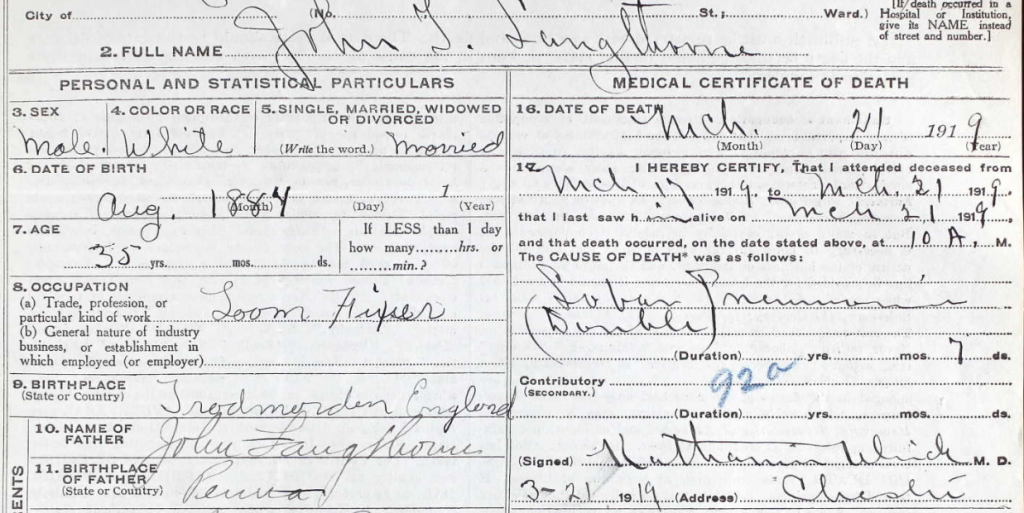 City of (No. St.; Ward.) [If death occurred in a
Hospital or Institution,
give its NAME instead
of street and number.]
2. FULL NAME John T. Langthorne
PERSONAL AND STATISTICAL PARTICULARS
3. SEX 4. COLOR OR RACE 5. SINGLE, MARRIED, WIDOWED
OR DIVORCED
Male. White (Write the word.) Married
6. DATE OF BIRTH
Aug. 1884 1
(Month) (Day) (Year)
7. AGE If LESS than 1 day
how many........hrs. or
35 yrs. mos. ds. .........min.?
8. OCCUPATION
(a) Trade, profession, or
particular kind of work Loom Fixer
(b) General nature of industry
business, or establishment in
which employed (or employer)
9. BIRTHPLACE
(State or Country) Trodmorden England
10. NAME OF
FATHER John Langthorne
11. BIRTHPLACE
OF FATHER
(State or Country) Penna.
MEDICAL CERTIFICATE OF DEATH
16. DATE OF DEATH
Mch. 21 1919
(Month) (Day) (Year)
17. I HEREBY CERTIFY, That I attended deceased from
Mch 17 1919, to Mch. 21 1919.
that I last saw him alive on Mch 21 1919.
and that death occurred, on the date stated above, at 10 A. M.
The CAUSE OF DEATH* was as follows:
Lobar Pneumonia
(Double)
(Duration) yrs. mos. 7 ds.
92a
Contributory
(SECONDARY.)
(Duration) yrs. mos. ds.
(Signed) M. D.
3-21 1919 (Address)